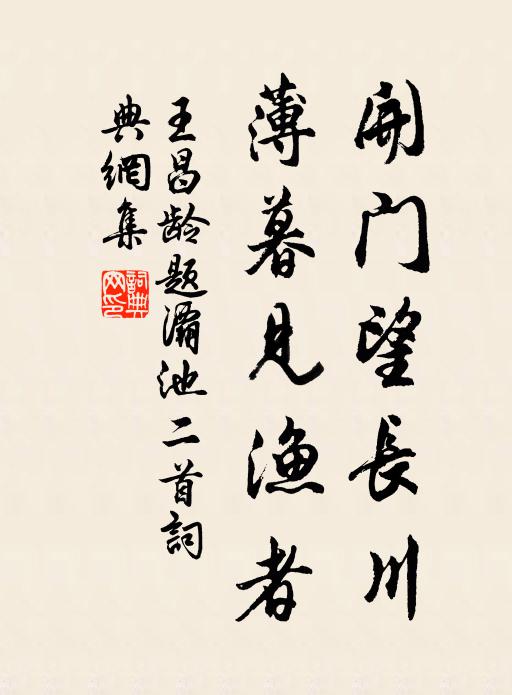 開门望長川
薄暮見渔者
王昌龄题灞池二首詞
典網集
詞典
网印